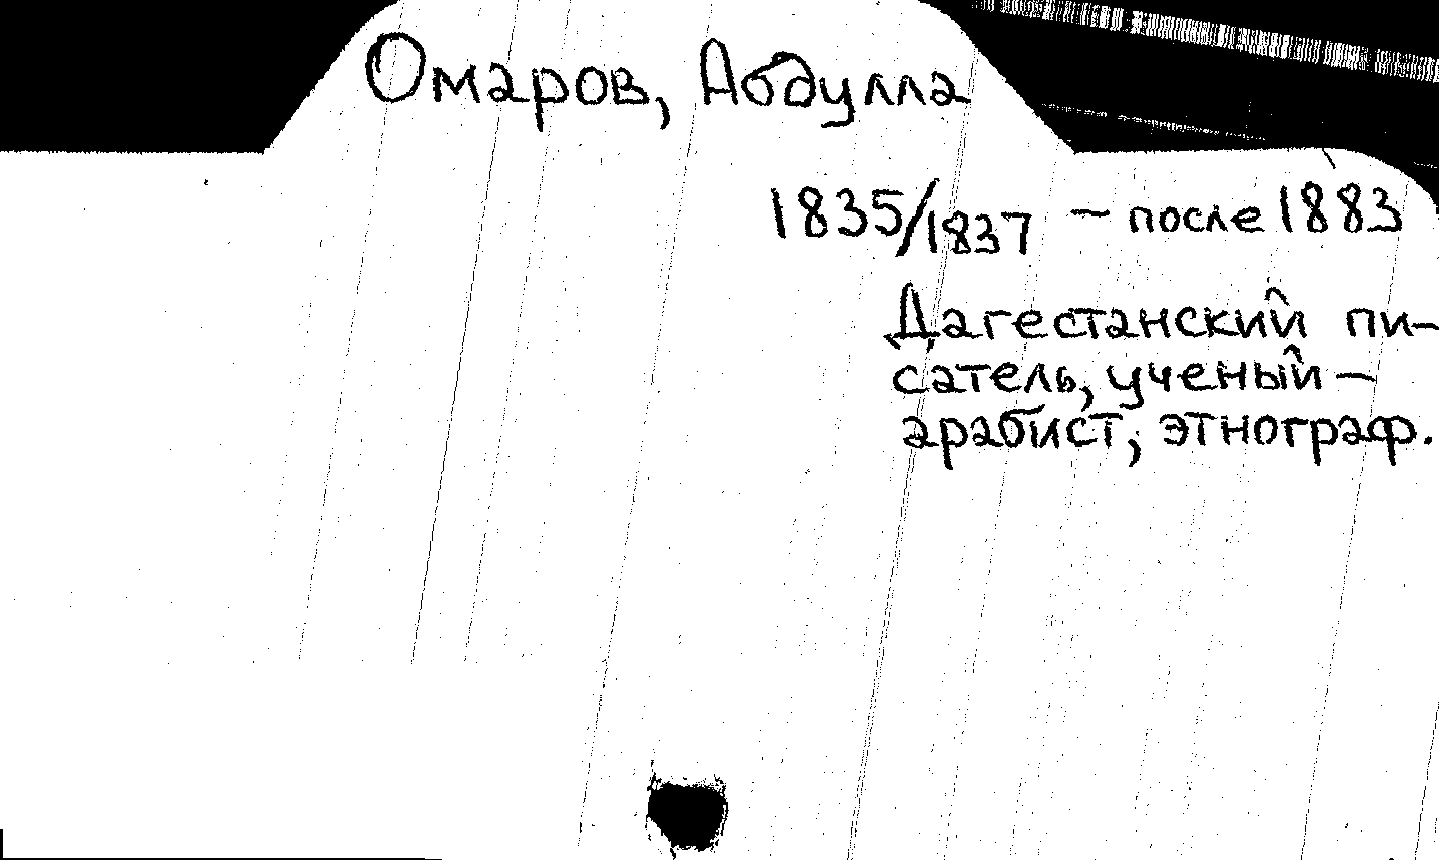 Омаров, Абдулла
1835/1837 – после 1883
Дагестанский пи-
сатель, ученый –
арабист, этнограф.